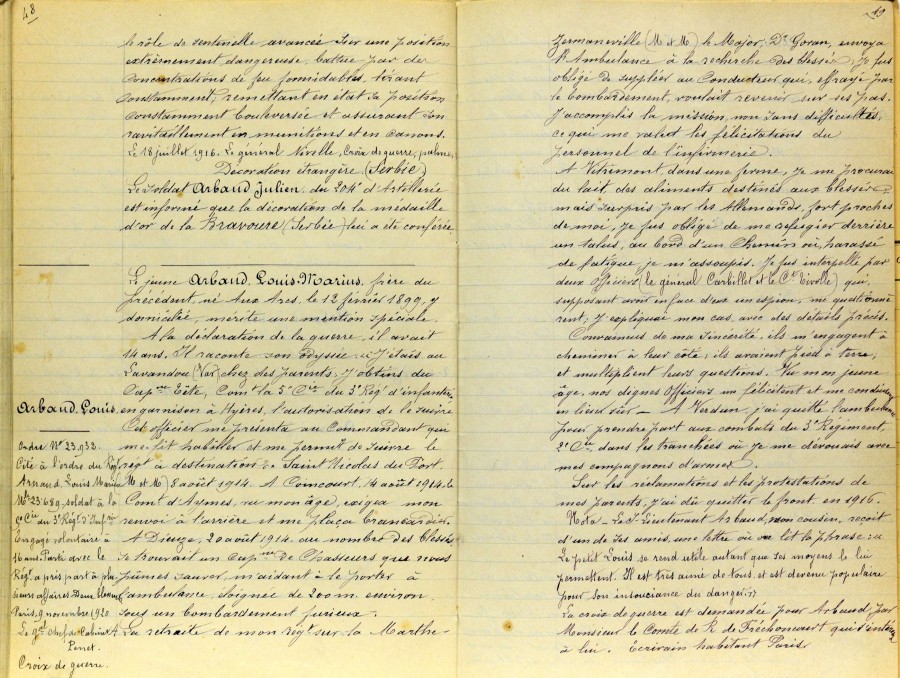 48
le rôle de sentinelle avancée sur une position
extrèmement dangereuse, battue par de
concentrations de feu formidables, tirant
constamment, remettant en état sa position
constamment bouleversée et assurant son
ravitaillement en munitions et en canons.
Le 18 juillet 1916. Le général Nivelle, Croix de guerre, palme,
Décoration Etrangère (Serbie)
Le soldat Arbaud Julien, du 204e d'Artillerie
est informé que la décoration de la médaille
d'or de la Bravoure (Serbie) lui a été conférée
Le jeune Arbaud, Louis-Marius, frère du
précédent, né Aux Arcs, le 12 février 1899, y
domicilié, mérite une mention spéciale.
A la déclaration de la guerre, il avait
14 ans. Il raconte son odyssée "J'étais au
Lavandou (Var) chez des parents; j'obtins du
Capne Tête, Comt la 5e Cie du 3e Régt d'infanterie
en garnison à Hyères, l'autorisation de le suivre
Cet officier me présenta au Commandant qui
me fit habiller et me permit de suivre le
régt à destination de Saint Nicolas du Port.
(M et M) 8 août 1914. A Coincourt, 14 août 1914, le
Comt d'Aymes, vu mon âge, exigea mon
renvoi à l'arrière et me plaça brancardier.
A Dieuze, 20 août 1914, au nombre des blessés
se trouvait un Capne de Chasseurs que nous
pûmes sauver, m'aidant à le porter à
l'ambulance, éloignée de 200 m. environ,
sous un bombardement furieux.
La retraite de mon régt sur la Marthe
Arbaud, Louis
Ordre No 23,932.
Cité à l'ordre du Régt
Arnaud, Louis Marius
Mle 23689, soldat à la
5e Cie du 3e Régt d'Infrie
Engagé volontaire à
16 ans. Parti avec le
Régt a pris part à plu
sieurs affaires. Deux blessures
Paris, 9 novembre 1920.
Le gal Chef de Cabinet
Croix de guerre.
49
Zermaneville (M et M) le Major, Dr Goran, envoya
l'Ambulance à la recherche des blessés. Je fus
obligé de suppléer au Conducteur qui, effrayé par
le bombardement, voulait revenir sur ses pas.
J'accomplis la mission, non sans difficultés,
ce qui me valut les félicitations du
personnel de l'infirmerie.
A Vitrimont, dans une ferme, je me procurai
du lait des aliments destinés aux blessés;
mais surpris par les Allemands, fort proches
de moi, je fus obligé de me réfugier derrière
un talus, au bord d'un chemin où, harassé
de fatigue je m'assoupis. Je fus interpellé par
deux Officiers (le général Carbillet et le Ct Tirolle) qui,
supposant avoir en face d'eux un espion, me questionnè
rent; j'expliquai mon cas, avec des détails précis.
Convaincus de ma sincérité, ils m'engagent à
cheminer à leur côté; ils avaient pied à terre,
et multiplient leurs questions. Vu mon jeune
âge, nos dignes Officiers me félicitent et me condui
en lieu sûr — A Verdun, j'ai quitté l'ambulance
pour prendre part aux combats du 3e Régiment,
2e Cie, dans les tranchées où je me dévouais avec
mes compagnons d'armes.
Sur les réclamations et les protestations de
mes parents, j'ai dû quitter le front en 1916.
Nota - Le St Lieutenant Arbaud, mon cousin, reçoit
d'un de ses amis, une lettre où on lit la phrase: "
Le petit Louis se rend utile autant que ses moyens le lui
permettent. Il est très aimé de tous, et est devenu populaire
pour son insouciance du danger."
La croix de guerre est demandée pour Arbaud, par
Monsieur le Comte de R. de Fréchoncourt qui s'intéresse
à lui. Ecrivain habitant Paris